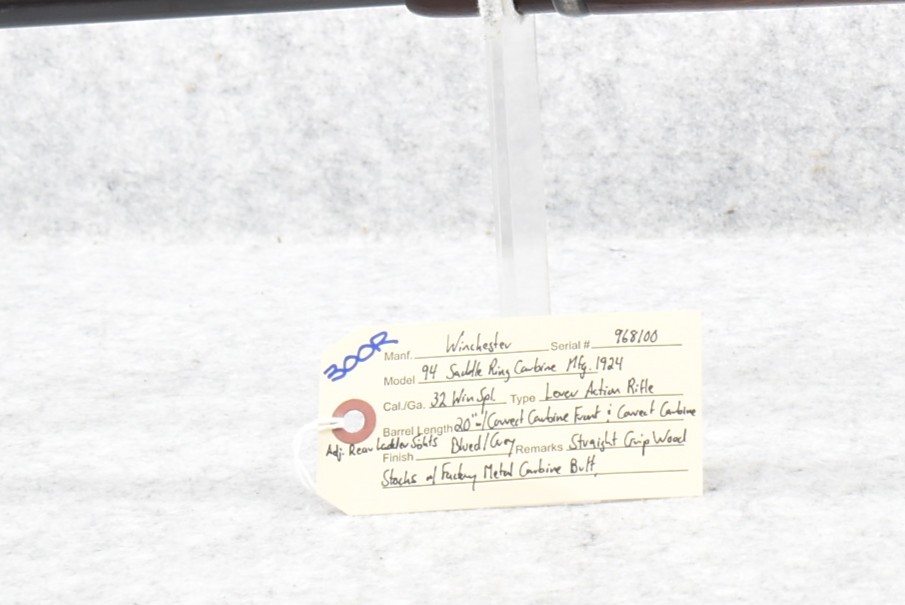 300R
Manf. Winchester Serial # 968100
Model 94 Saddle Ring Carbine Mfg. 1924
Cal./Ga. 32 Win Spl Type Lever Action Rifle
Barrel Length 20" w/Correct Carbine Front & Correct Carbine
Adj. Rear Ladder Sights
Finish Blued/Grey Remarks Straight Grip Wood
Stocks w/ Factory Metal Carbine Butt